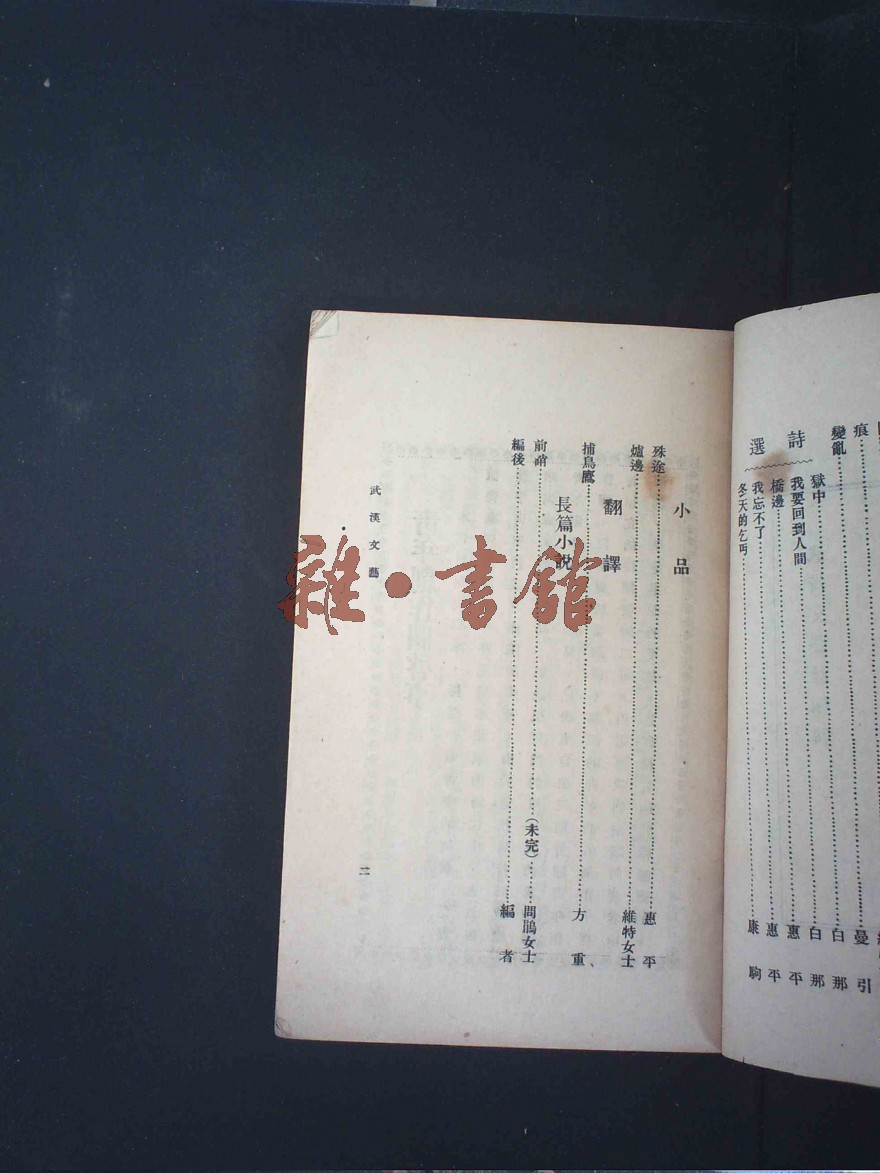 痕
變亂……曼引
詩選
獄中……白那
我要回到人間……白那
橋邊……惠平
我忘不了……惠平
冬天的乞丐……康駒
小品
殊途……惠平
爐邊……維特女士
翻譯
捕鳥鷹……方重、
長篇小説
前哨……(未完)……問鵑女士
編後……編者
武漢文藝
二
雜·書館